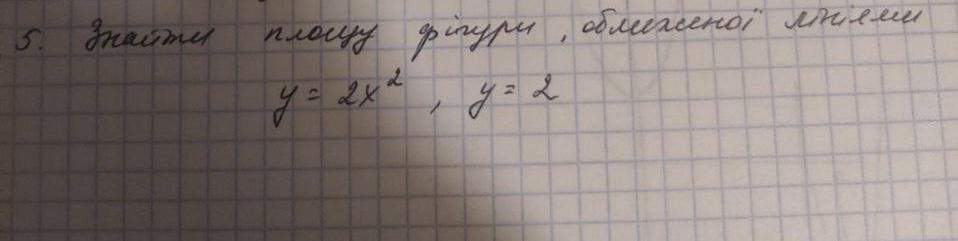 5. Знайти площу фігури, обмеженої лініями
y = 2x², y = 2